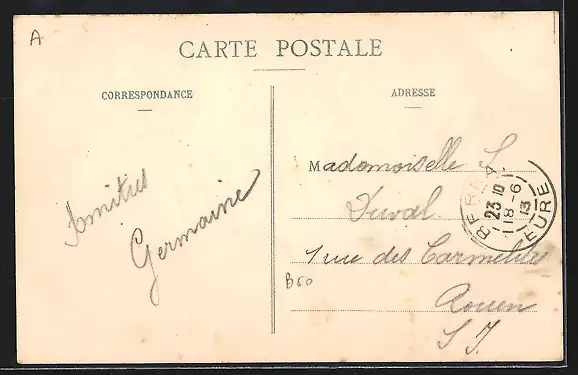 A
CARTE POSTALE
CORRESPONDANCE
ADRESSE
Amitiés
Germaine
Mademoiselle S
Duval
1 rue des Carmélites
Rouen
S I
B50
23 10
18 - 6
13
EURE